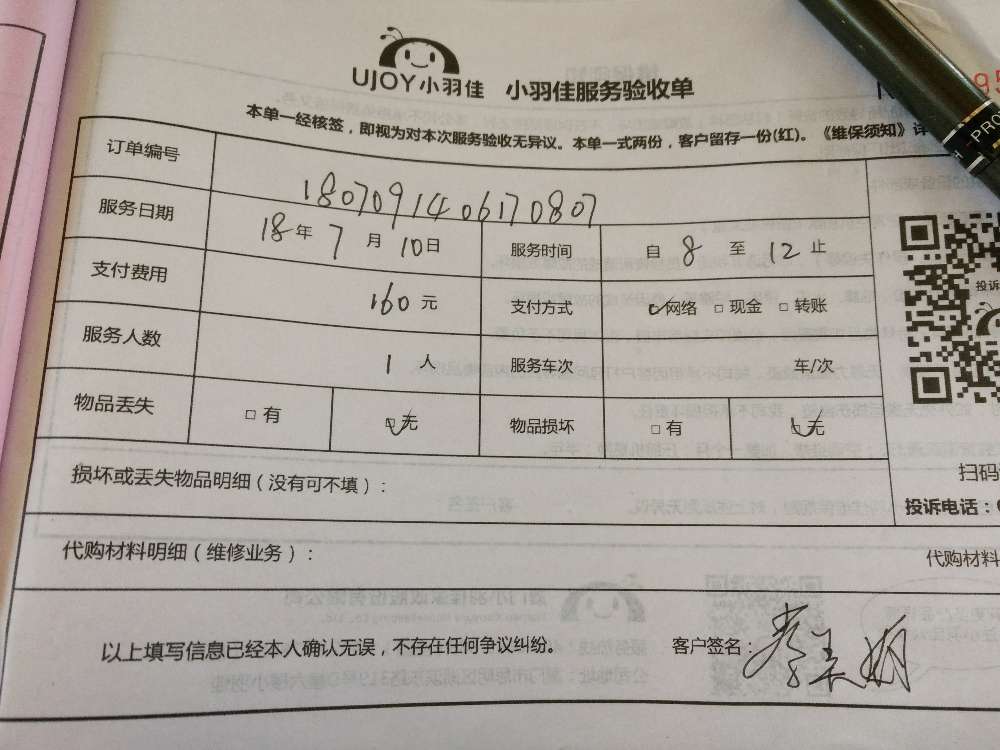 UJOY小羽佳 小羽佳服务验收单
95
PRO
本单一经核签，即视为对本次服务验收无异议。本单一式两份，客户留存一份(红)。《维保须知》详
订单编号 180709140617080​7
服务日期 18年7月10日 服务时间 自8至12止
支付费用 160元 支付方式 网络 □现金 □转账
投诉
服务人数 1人 服务车次 车/次
物品丢失 □有 □无 物品损坏 □有 □无
损坏或丢失物品明细（没有可不填）：
扫码
投诉电话：
代购材料明细（维修业务）：
代购材料
以上填写信息已经本人确认无误，不存在任何争议纠纷。 客户签名：